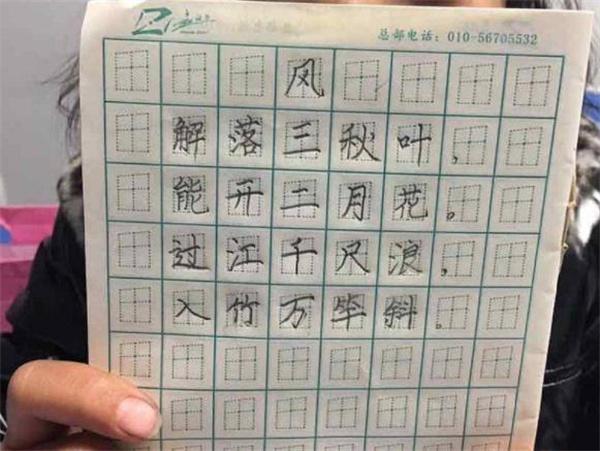 总部电话：010-56705532
凤
解落三秋叶，
能开二月花。
过江千尺浪，
入竹万竿斜。